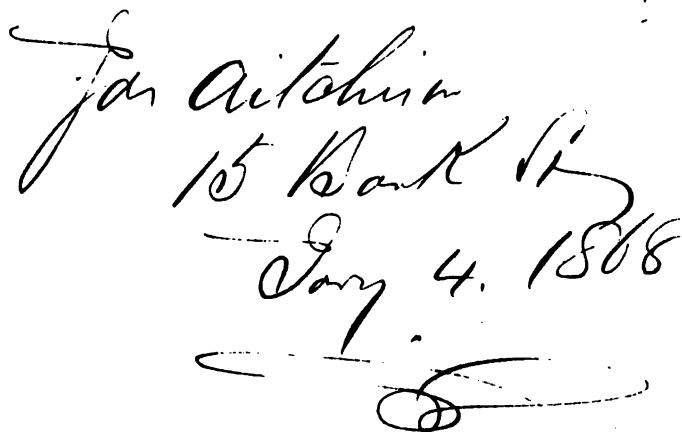 Jas Aitchison
15 Bank St
Jany 4. 1868